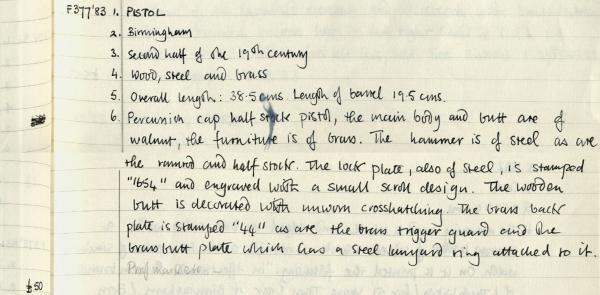 F377'83 1. PISTOL
2. Birmingham
3. Second half of the 19th century
4. Wood, steel and brass
5. Overall length: 38.5 cms Length of barrel 19.5 cms.
6. Percussion cap half stock pistol, the main body and butt are of
walnut, the furniture is of brass. The hammer is of steel as are
the ramrod and half stock. The lock plate, also of steel, is stamped
"1654" and engraved with a small scroll design. The wooden
butt is decorated with unworn crosshatching. The brass back
plate is stamped "44" as are the brass trigger guard and the
brass butt plate which has a steel lanyard ring attached to it.
£50